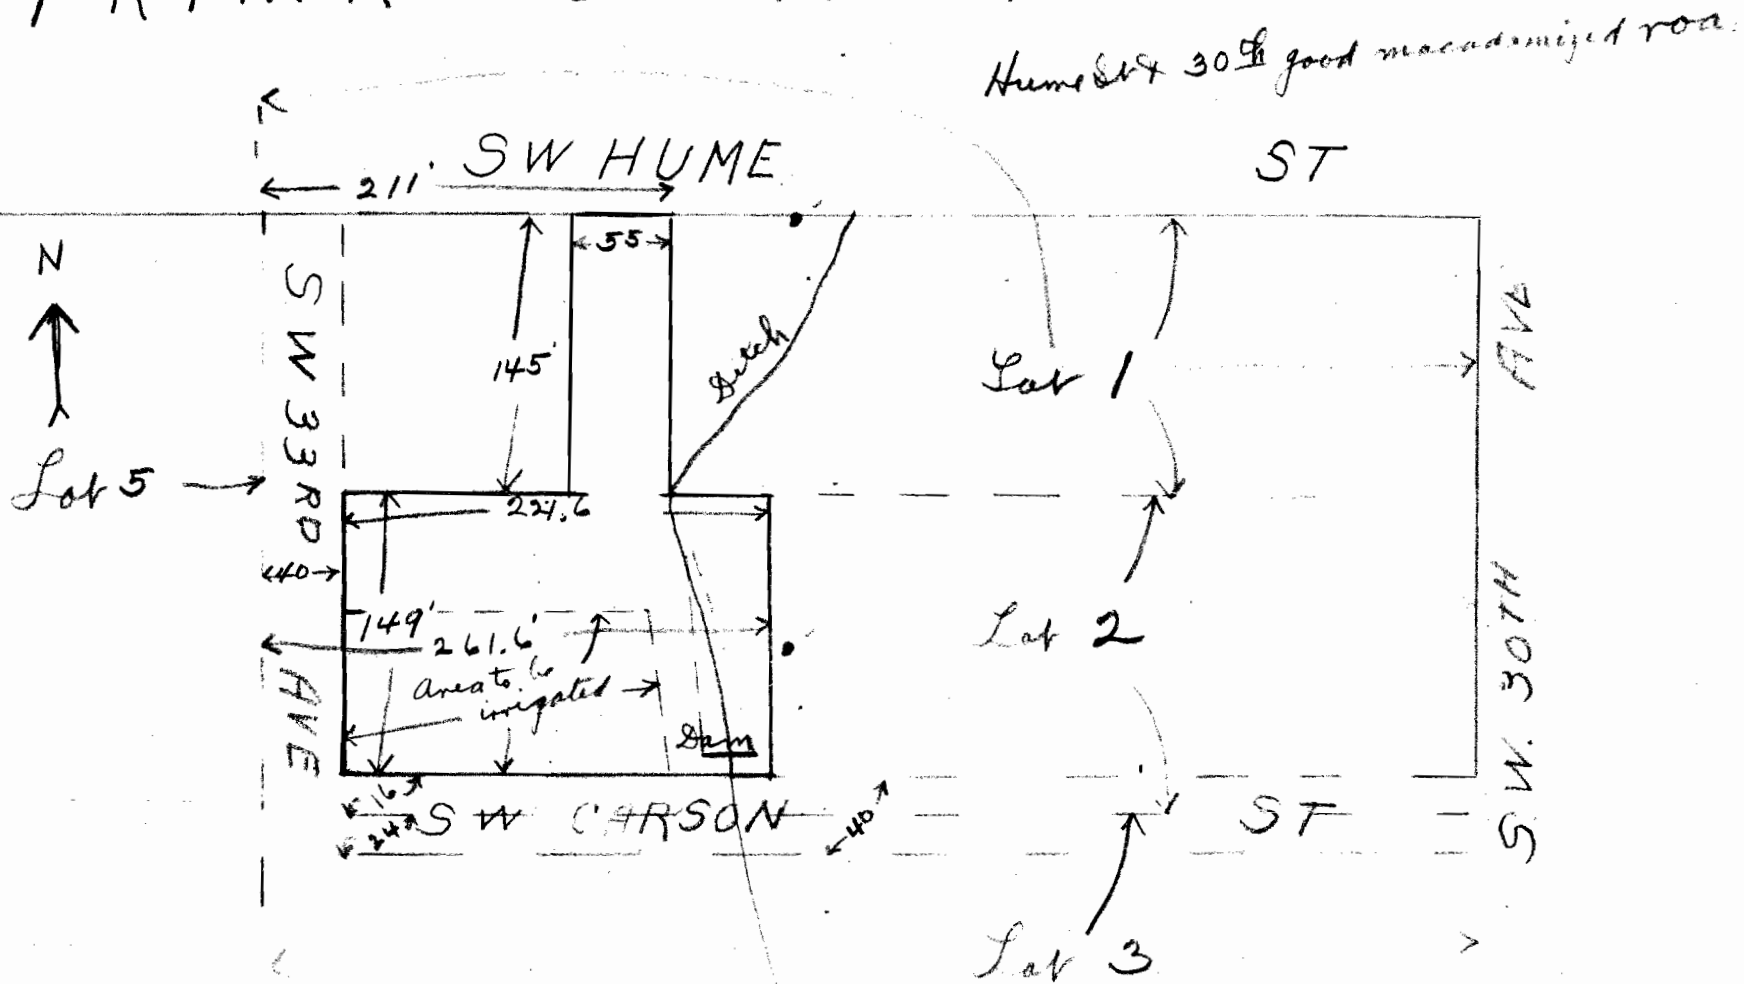 Hume St & 30th good macadamized roa
SW HUME ST
211'
N
55
SW 33RD AVE
145'
Ditch
Lot 1
AVE
Lot 5
221.6
40
149'
261.6'
Lot 2
Area to be
irrigated
Dam
S W. 30TH
16
24
SW CARSON ST
40
Lot 3